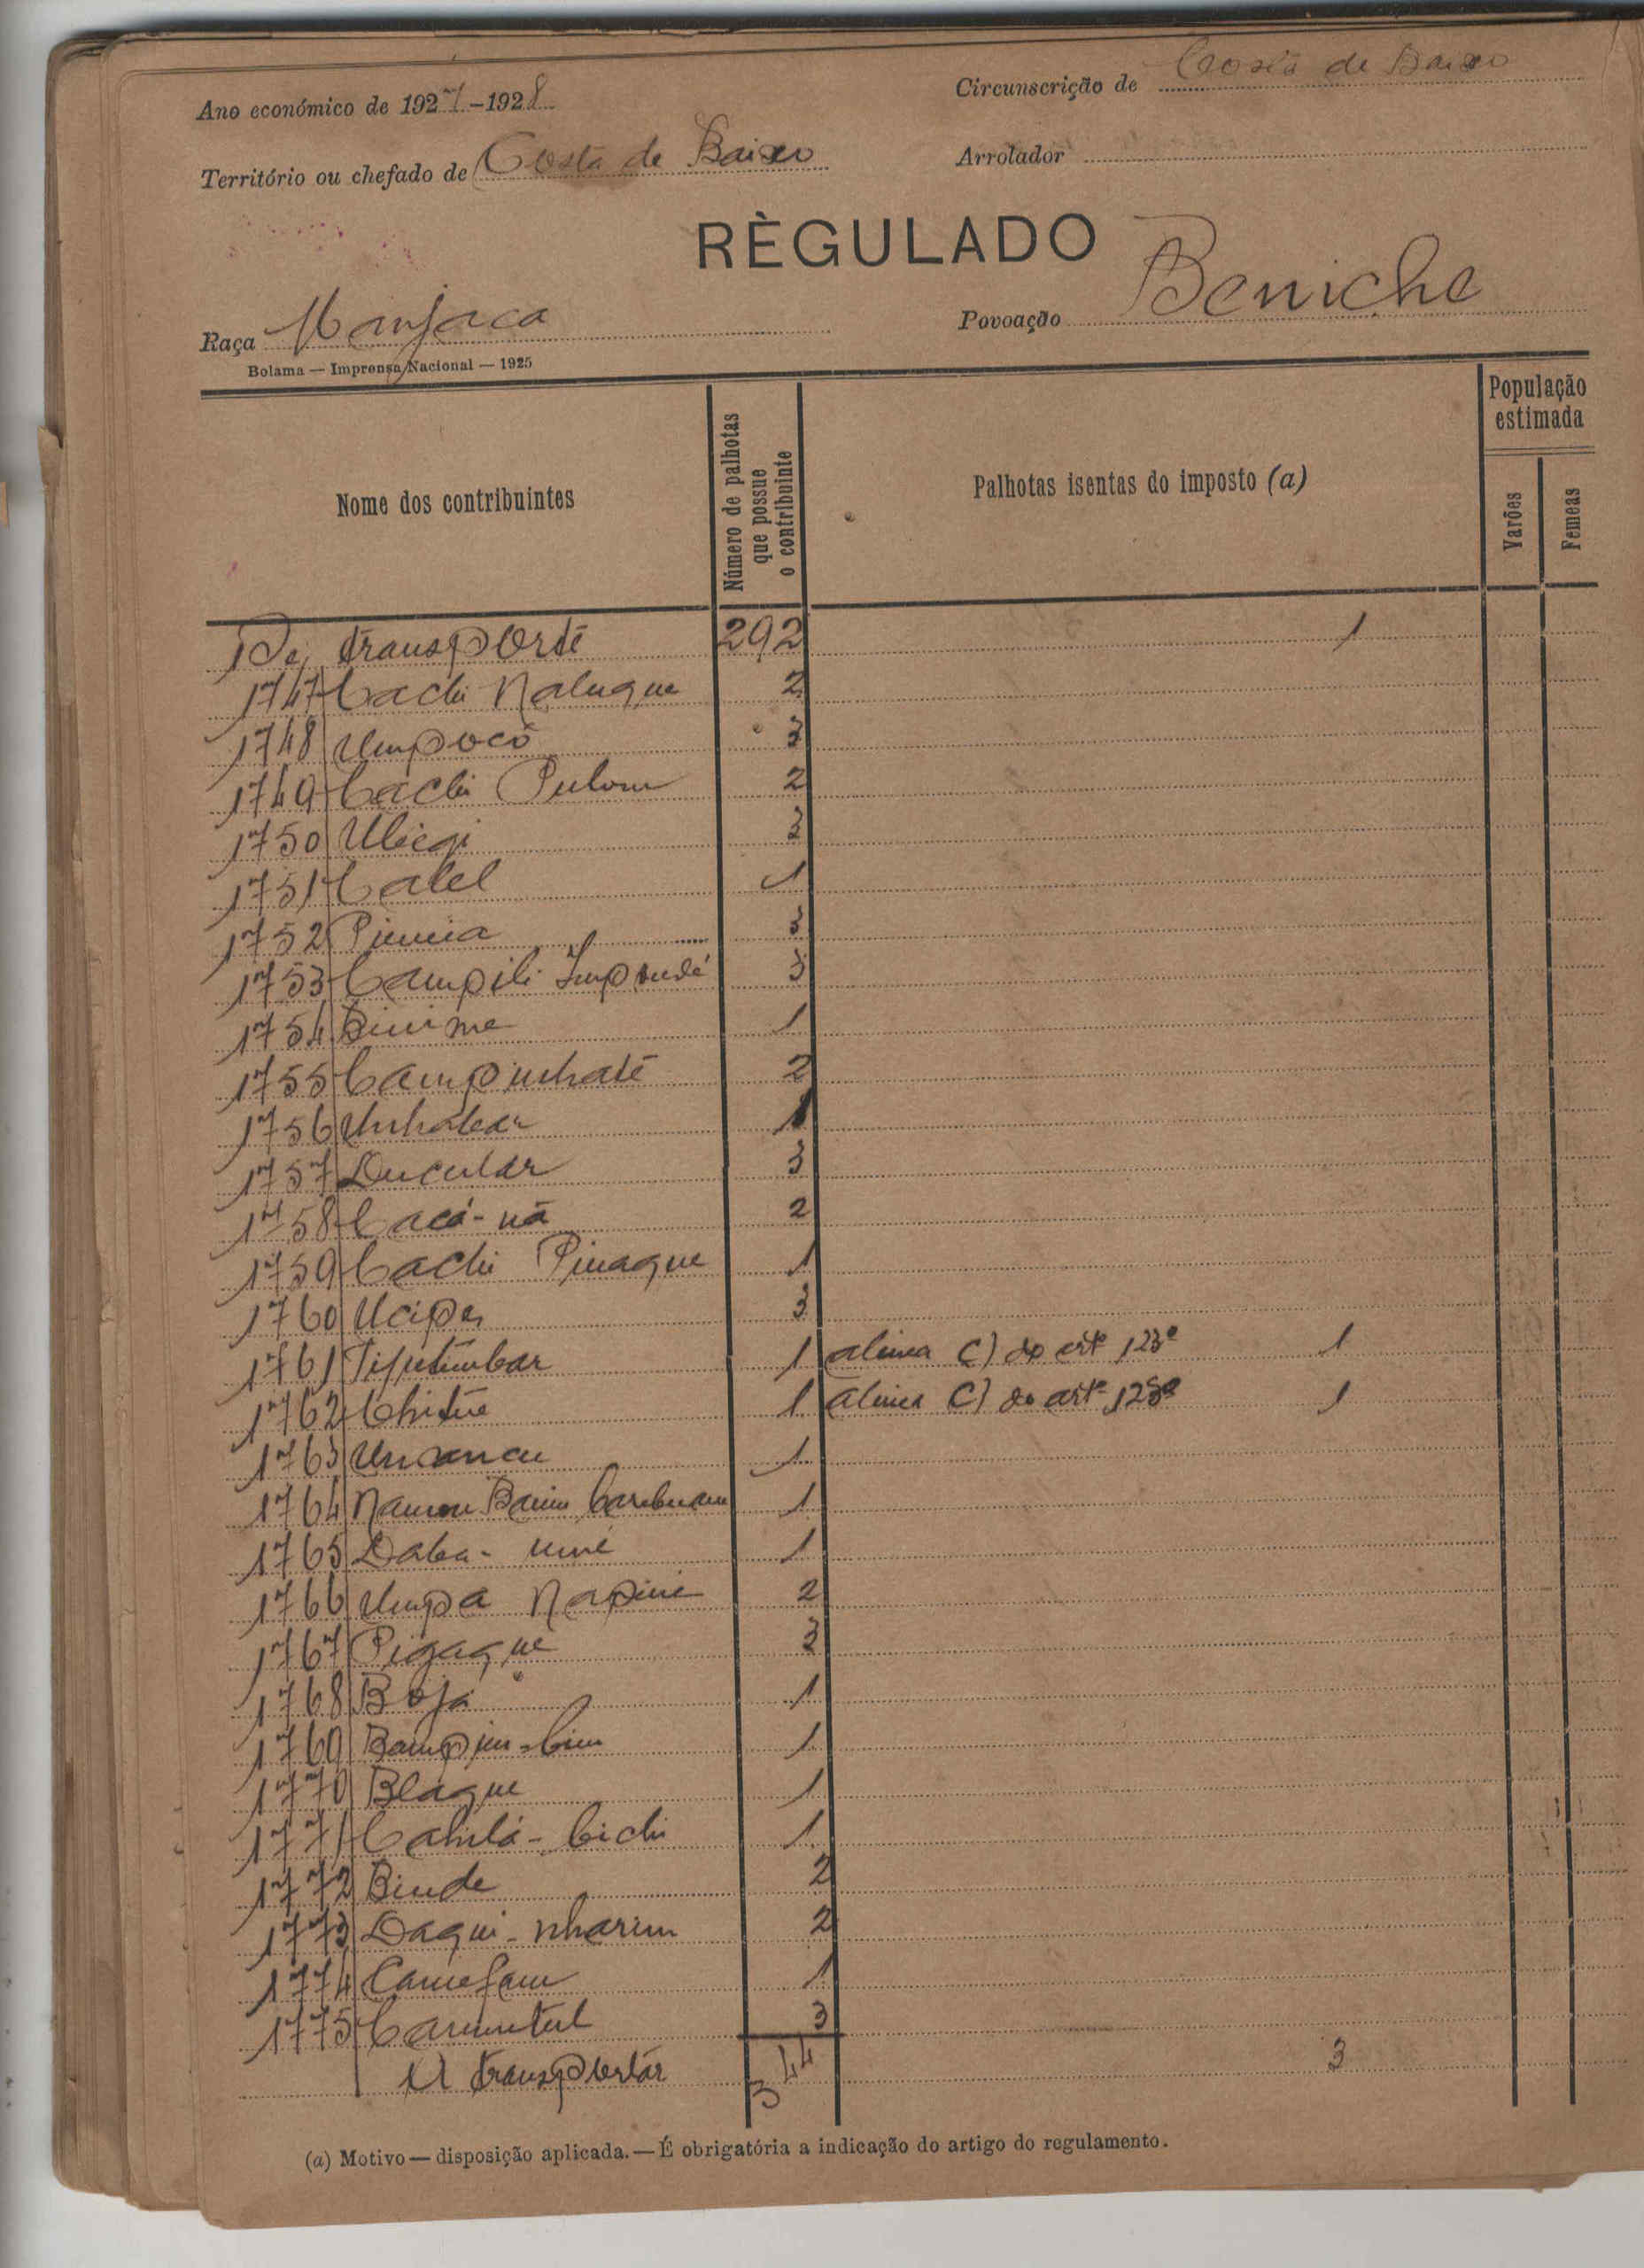 Ano económico de 1927-1928
Circunscrição de Costa de Baixo
Território ou chefado de Costa de Baixo
Arrolador
RÈGULADO
Raça Manjaca
Povoação Beniche
Bolama — Imprensa Nacional — 1925
Nome dos contribuintes
Número de palhotas que possue o contribuinte
Palhotas isentas do imposto (a)
População estimada
Varões
Femeas
De transporte 292 1
1747 Cachi Naluque 2
1748 Umpocó 3
1749 Cachi Pulom 2
1750 3
1751 Catel 1
1752 3
1753 Campili 3
1754 1
1755 Campinhaté 2
1756 1
1757 Ducular 3
1758 Cacá-nã 2
1759 Cachi Pinaque 1
1760 Ucipa 3
1761 1 alinea C) do artº 123º 1
1762 1 alinea C) do artº 123º 1
1763 1
1764 1
1765 1
1766 Umpa Napini 2
1767 Pigaque 3
1768 Bojá 1
1769 Bampim-bim 1
1770 Blaque 1
1771 1
1772 Binde 2
1773 Daqui-nharim 2
1774 1
1775 3
A transportar 344 3
(a) Motivo — disposição aplicada. — É obrigatória a indicação do artigo do regulamento.